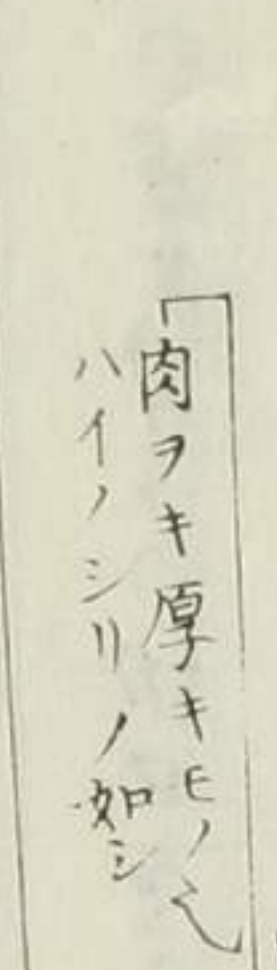 肉ヲキ厚キモノ也
ハイノシリノ如シ